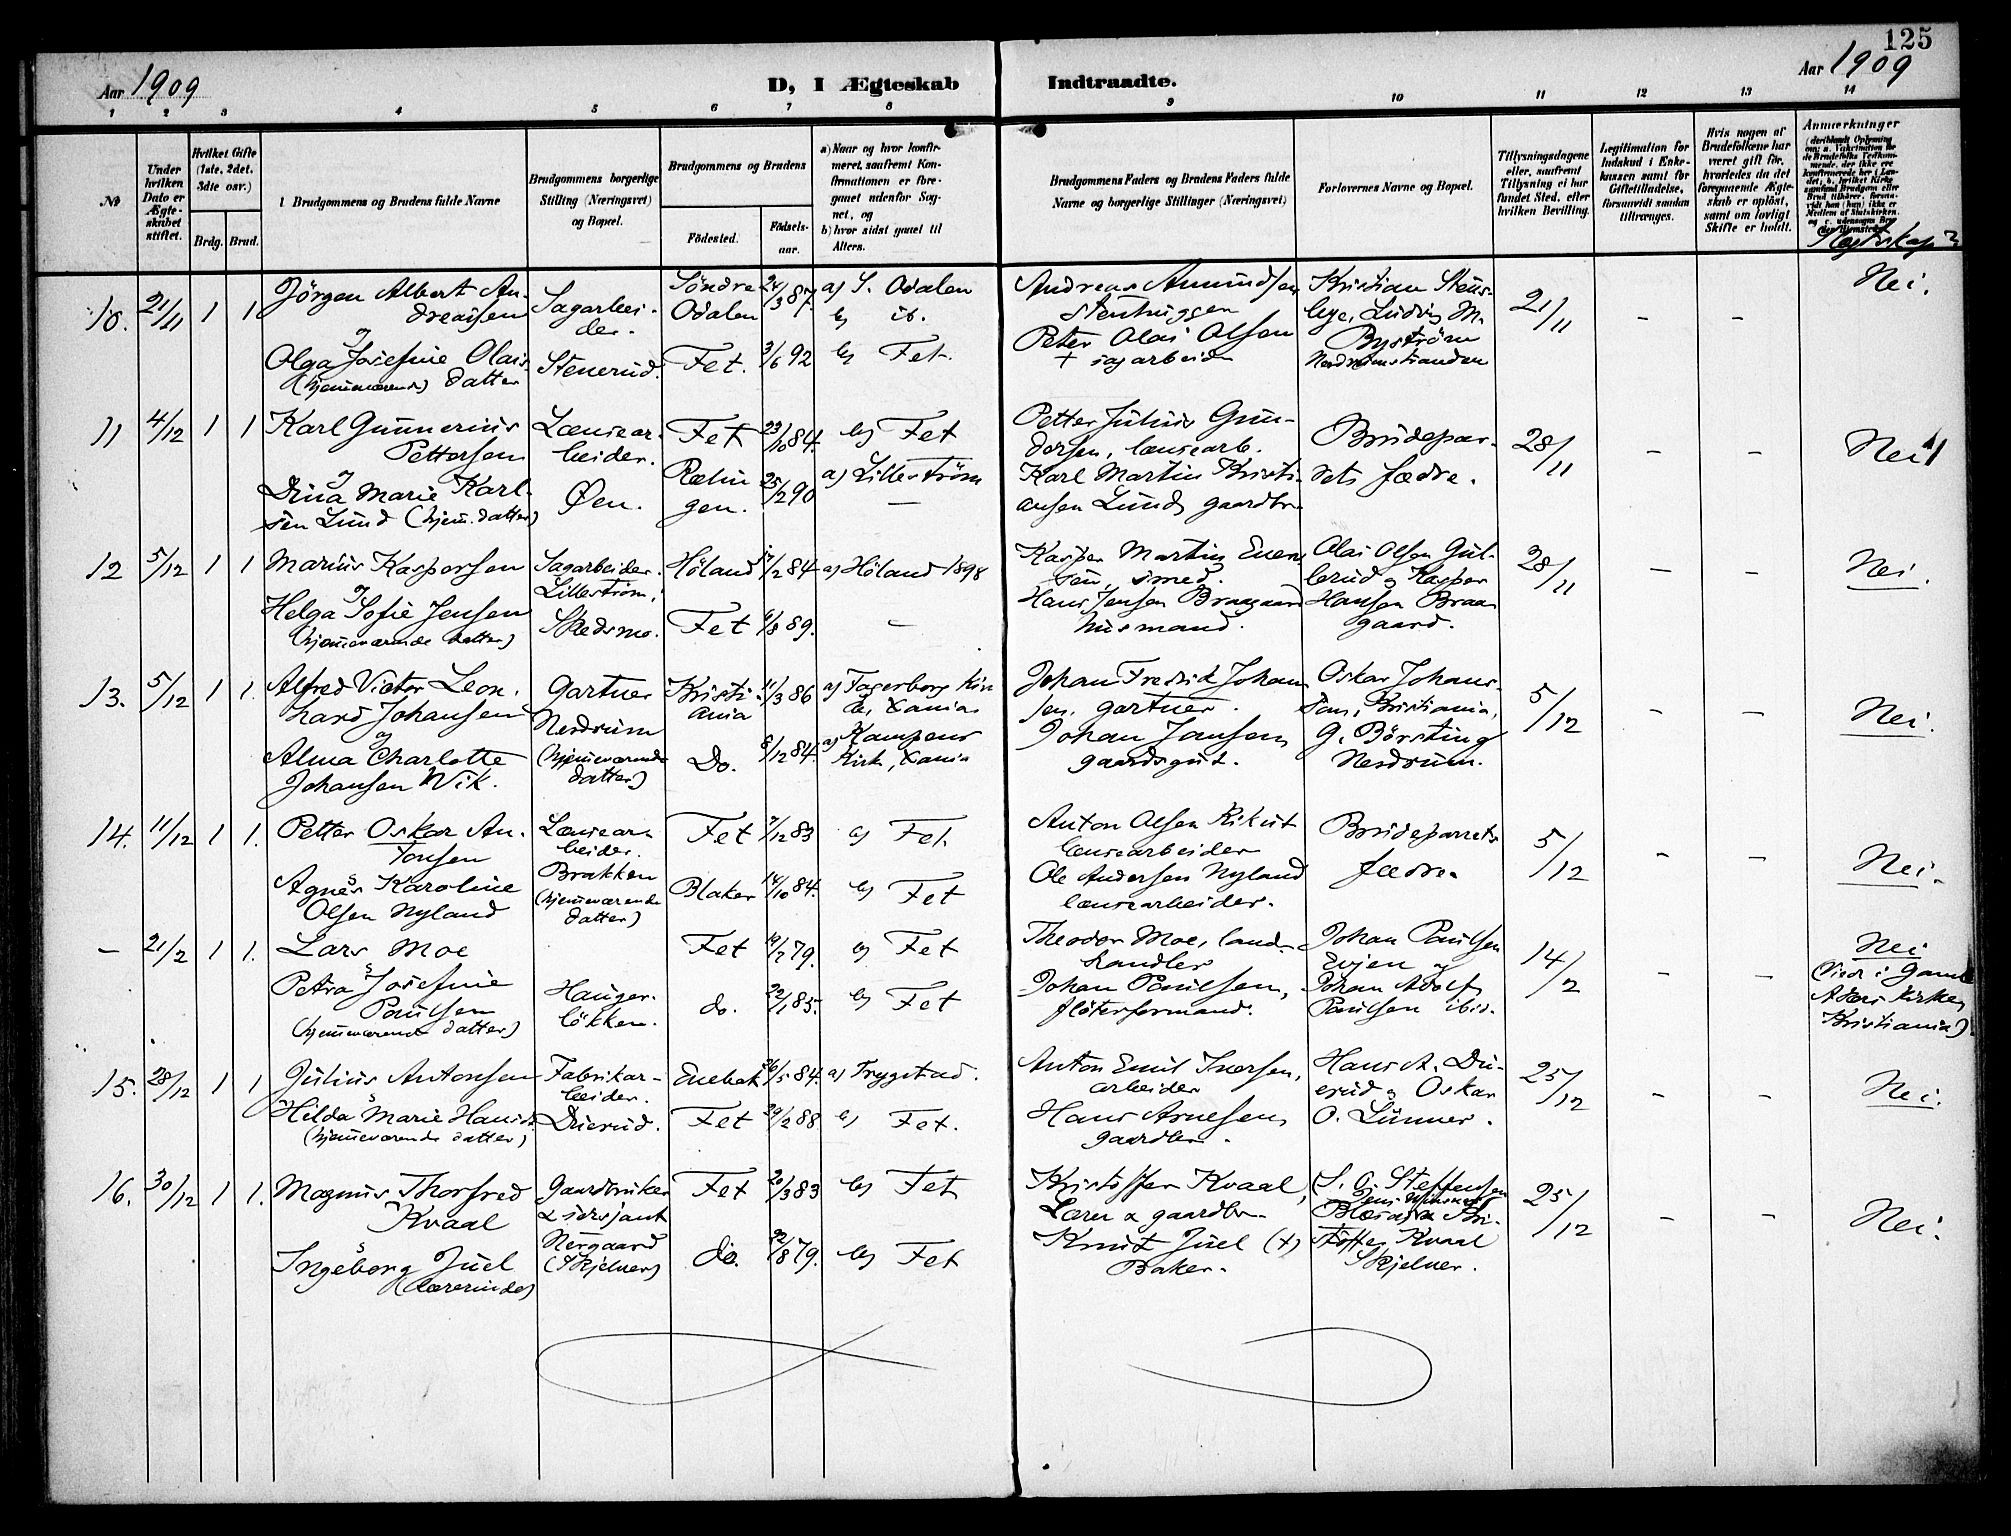 125
Aar 1909
D, I Ægteskab Indtraadte.
Aar 1909
1 2 3 4 5 6 7 8 9 10 11 12 13 14
№
Under hvilken Dato er Ægteskabet stiftet.
Hvilket Gifte (1ste, 2det, 3die osv.)
Brdg. Brud.
Brudgommens og Brudens fulde Navne
Brudgommens borgerlige Stilling (Næringsvei) og Bopæl.
Brudgommens og Brudens
Födested. Födselsaar.
a) Naar og hvor konfirmeret, saafremt Konfirmationen er foregaaet udenfor Sognet, og
b) hvor sidst gaaet til Alters.
Brudgommens Faders og Brudens Faders fulde Navne og borgerlige Stillinger (Næringsvei)
Forlovernes Navne og Bopæl.
Tillysningsdagene eller, saafremt Tillysning ei har fundet Sted, efter hvilken Bevilling.
Legitimation for Indskud i Enkekassen samt for Giftetilladelse, forsaavidt saadan tiltrænges.
Hvis nogen af Brudefolkene har været gift för, hvorledes da det foregaaende Ægteskab er oplöst, samt om lovligt Skifte er holdt.
Anmærkninger
10. 21/11 1 1 Jörgen Albert An- Sagarbei- Söndre 24/3 87. a) S. Odalen Andreas Amundsen Kristian Stens- 21/11 - - Nei.
dreassen der. Odalen b) ib. Stenhuggen bye, Ludvig M.
Olga Josefine Olais- Stenerud. Fet. 3/6 92 b) Fet. Peter Olai Olsen Byström
(hjemmeværende) datter + sagarbeider
11 4/12 1 1 Karl Gunnerius Lænsear- Fet 23/10 84. b) Fet Petter Julius Gun- Brudepar- 28/11 - - Nei
Pettersen beider. dersen, lænsearb. rets fædre.
Dina Marie Karl- Öen. Rælin- 25/2 90 a) Lilleström Karl Martin Kristi-
sen Lund (hjem. datter) gen. — ansen Lund, gaardbr.
12 5/12 1 1 Marius Kaspersen Sagarbeider. Höland 17/2 84 a) Höland 1898 Kasper Martin Even- Olai Olsen Gul- 28/11 - - Nei.
Lilleström, sen, smed. brud og Kasper
Helga Sofie Jensen Skedsmo. Fet 6/8 89. — Hans Jensen Braagaard Hansen Braa-
(hjemmeværende datter) husmand. gaard.
13. 5/12 1 1. Alfred Victor Leon- Gartner Kristi- 11/3 86 a) Fagerborg Kir- Johan Fredrik Johan- Oskar Johans- 5/12 - - Nei.
hard Johansen Nerdrum ania ke, Xania sen, gartner. son, Kristiania,
Alma Charlotte (hjemmeværende Do. 8/12 84. a) Kampens Johan Jansen G. Börsting
Johansen Wik. datter) Kirke, Xania gaardsgut. Nerdrum.
14. 11/12 1 1. Petter Oskar An- Lænsear- Fet 7/12 83 a) Fet. Anton Olsen Rikut Brudeparrets 5/12 - - Nei.
tonsen beider. lænsearbeider fædre.
Agnes Karoline Brakken Blaker 14/10 84. b) Fet Ole Andersen Nyland
Olsen Nyland (hjemmeværende datter) lænsearbeider.
— 21/2 1 1. Lars Moe Fet 19/7 79. b) Fet Theodor Moe, land- Johan Paulsen 14/2 - - Nei
handler Evjen og (Viet i Gamle
Petra Josefine Hauger- do. 22/1 85. b) Fet Johan Paulsen, Johan Adolf Akers Kirke,
Paulsen lökken. flöterformand. Paulsen ibid. Kristiania)
(hjemmeværende datter)
15. 28/12 1 1 Julius Antonsen Fabrikar- Enebak 26/5 84. a) Trygstad. Anton Emil Iversen, Hans A. Du- 25/12 - - Nei.
beider. arbeider erud og Oskar
Hilda Marie Hansdr. Duerud. Fet 29/2 88 b) Fet. Hans Arnesen, O. Lunner.
(hjemmeværende datter) gaardbr.
16. 30/12 1 1. Magnus Thorfred Gaardbruker Fet 20/3 83 b) Fet Kristoffer Kvaal, S. O. Steffensen 25/12 - - Nei.
Kvaal & sersjant Lærer & gaardbr. & Kri-
Ingeborg Juel Nergaard do. 22/8 79. b) Fet Knut Juel (+) stoffer Kvaal
(Lærerinde) (Skjelner) Baker. Skjelner.